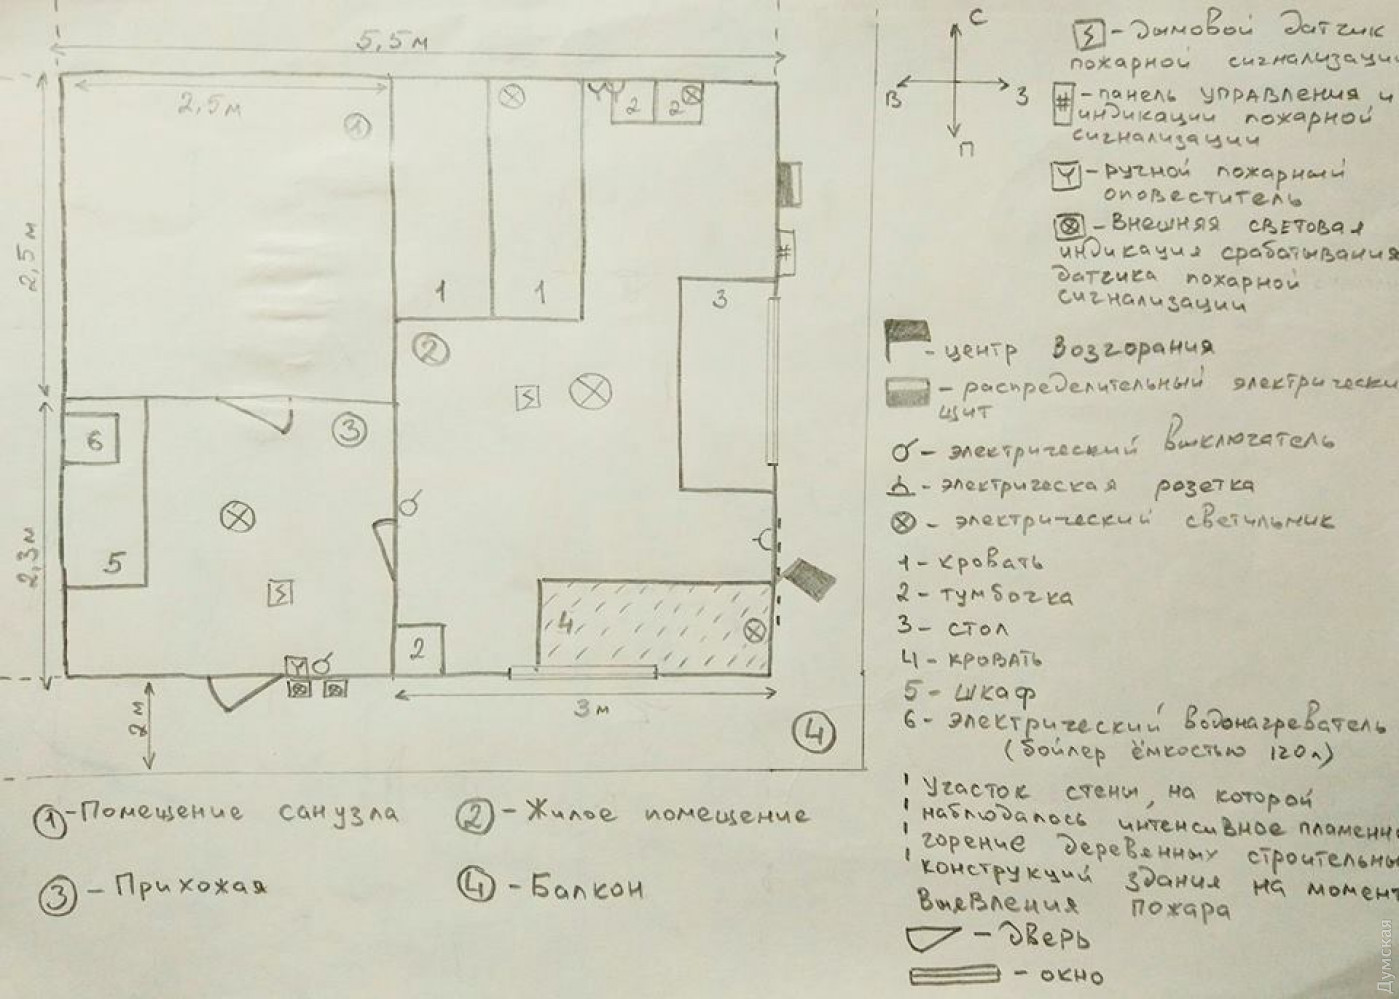 5,5м
2,5м
1
2,5м
2,3м
2 2
1 1
#
3
2
3
6
5
4
2
2м
3м
4
С
В З
П
- дымовой датчик
пожарной сигнализации
# - панель управления и
индикации пожарной
сигнализации
- ручной пожарный
оповеститель
- Внешняя световая
индикация срабатывания
датчика пожарной
сигнализации
- центр возгорания
- распределительный электрически
щит
- электрический выключатель
- электрическая розетка
- электрический светильник
1 - кровать
2 - тумбочка
3 - стол
4 - кровать
5 - шкаф
6 - электрический водонагреватель
(бойлер ёмкостью 120л)
Участок стены, на которой
наблюдалось интенсивное пламенно
горение деревенных строительны
конструкций здания на момент
выявления пожара
- дверь
- окно
1 - Помещение санузла
2 - Жилое помещение
3 - Прихожая
4 - Балкон
Думская